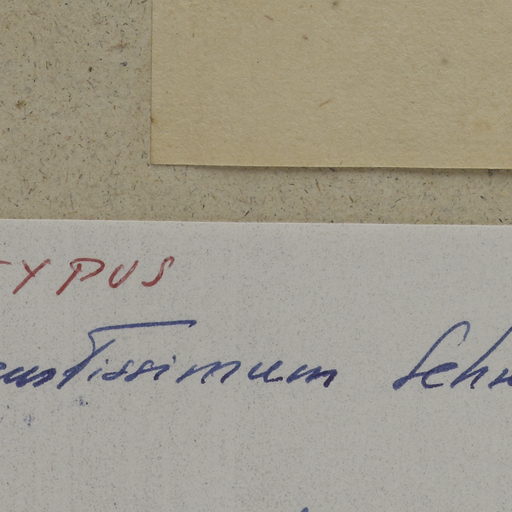 TYPUS
ustissimum Schw